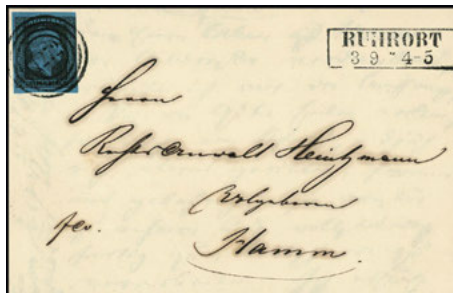 RUHRORT
3 9 * 4-5
Herrn
Rechtsanwalt Heintzmann
Wohlgeboren
fco.
Hamm.